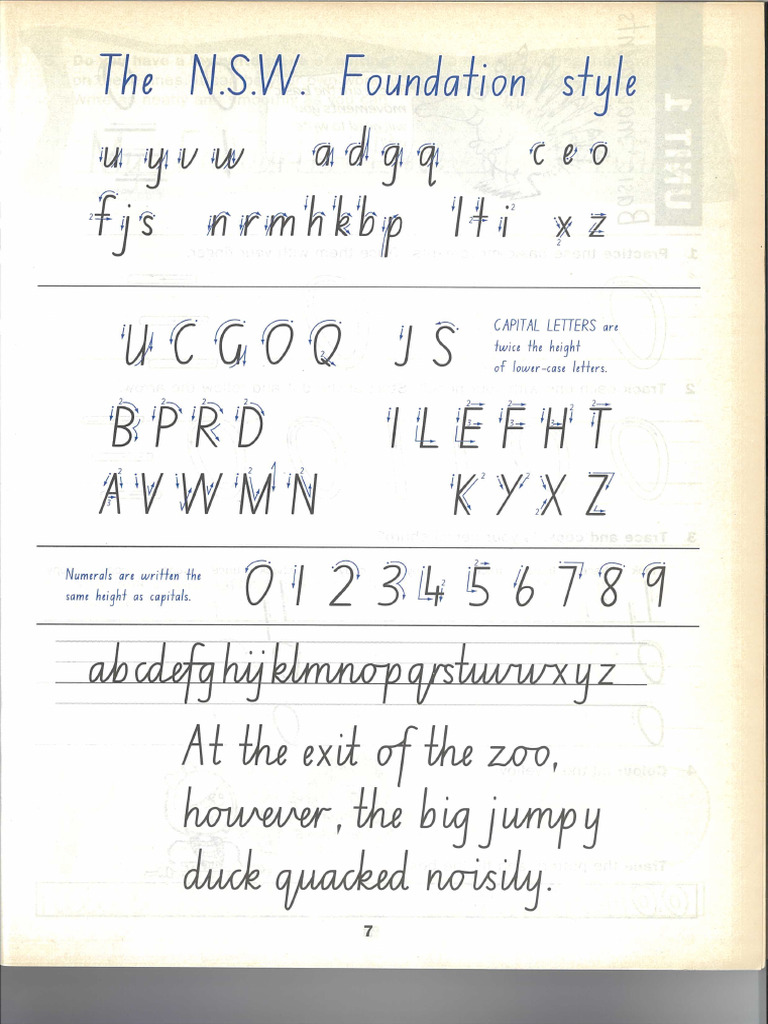 The N.S.W. Foundation style
u y v w a d g q c e o
f j s n r m h k b p l t i x z
U C G O Q J S
CAPITAL LETTERS are
twice the height
of lower-case letters.
B P R D I L E F H T
A V W M N K Y X Z
Numerals are written the
same height as capitals.
0 1 2 3 4 5 6 7 8 9
abcdefghijklmnopqrstuvwxyz
At the exit of the zoo,
however, the big jumpy
duck quacked noisily.
7